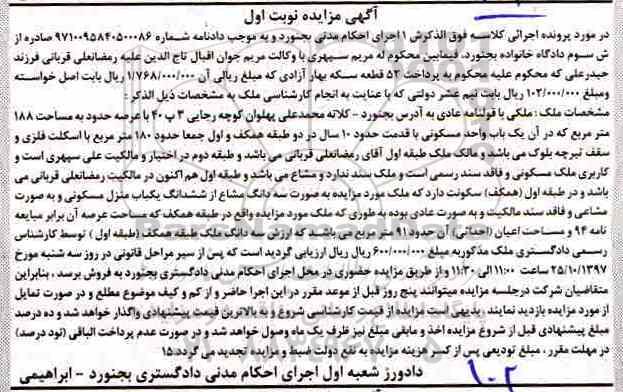 آگهی مزایده نوبت اول
در مورد پرونده اجرائی کلاسه فوق الذکرش ۱ اجرای احکام مدنی بجنورد و به موجب دادنامه شماره ۹۷۱۰۰۹۵۸۴۰۵۰۰۰۸۶ صادره از
ش سوم دادگاه خانواده بجنورد، فمابین محکوم له مریم سپهری با وکالت مریم جوان اقبال تاج الدین علیه رمضانعلی قربانی فرزند
حیدرعلی که محکوم علیه محکوم به پرداخت ۵۲ قطعه سکه بهار آزادی که مبلغ ریالی آن ۱/۷۶۸/۰۰۰/۰۰۰ ریال بابت اصل خواسته
ومبلغ ۱۰۲/۰۰۰/۰۰۰ ریال بابت نیم عشر دولتی که با عنایت به انجام کارشناسی ملک به مشخصات ذیل الذکر:
مشخصات ملک: ملکی با قولنامه عادی به آدرس بجنورد - کلاته محمدعلی پهلوان کوچه رجایی ۳ پ ۴۰ با عرصه حدود به مساحت ۱۸۸
متر مربع که در آن یک باب واحد مسکونی با قدمت حدود ۱۰ سال در دو طبقه همکف و اول جمعا حدود ۱۸۰ متر مربع با اسکلت فلزی و
سقف تیرچه بلوک می باشد و مالک ملک طبقه اول آقای رمضانعلی قربانی می باشد و طبقه دوم در اختیار و مالکیت علی سپهری است و
کاربری ملک مسکونی و فاقد سند رسمی است و ملک سند ندارد و مشاع می باشد و طبقه اول هم اکنون در مالکیت رمضانعلی قربانی می
باشد و در طبقه اول (همکف) سکونت دارد که ملک مورد مزایده به صورت سه دانگ مشاع از ششدانگ یکباب منزل مسکونی و به صورت
مشاعی و فاقد سند مالکیت و به صورت عادی بوده به طوری که ملک مورد مزایده واقع در طبقه همکف که مساحت عرصه آن برابر مبایعه
نامه ۹۴ و مساحت اعیان (احداثی) آن حدود ۹۱ متر مربع می باشد که ارزش سه دانگ ملک طبقه همکف (طبقه اول) توسط کارشناس
رسمی دادگستری ملک مذکوربه مبلغ ۶۰۰/۰۰۰/۰۰۰ ریال ریال ارزیابی گردید است که پس از سیر مراحل قانونی در روز سه شنبه مورخ
۲۵/۱۰/۱۳۹۷ ساعت ۱۱:۰۰ الی ۱۱:۳۰ واز طریق مزایده حضوری در محل اجرای احکام مدنی دادگستری بجنورد به فروش برسد، بنابراین
متقاضیان شرکت درجلسه مزایده میتوانند پنج روز قبل از موعد مقرر در این اجرا حاضر و از کم و کیف موضوع مطلع و در صورت تمایل
از مورد مزایده بازدید نمایند، بدیهی است مزایده از قیمت کارشناسی شروع و به بالاترین قیمت پیشنهادی واگذار خواهد شد و ده درصد
مبلغ پیشنهادی قبل از شروع مزایده اخذ و مابقی مبلغ نیز ظرف یک ماه وصول خواهد شد و در صورت عدم پرداخت الباقی (نود درصد)
در مهلت مقرر، مبلغ تودیعی پس از کسر هزینه مزایده به نفع دولت ضبط و مزایده تجدید می گردد.۱۵
دادورز شعبه اول اجرای احکام مدنی دادگستری بجنورد - ابراهیمی